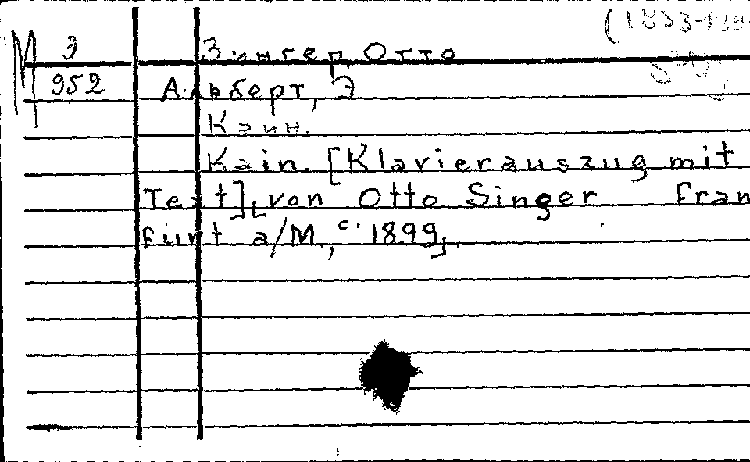 М Э Зингер, Отто
952 Альберт, Э
Каин.
Kain. [Klavierauszug mit
Text], von Otto Singer Fran
furt a/M., c. 1899,